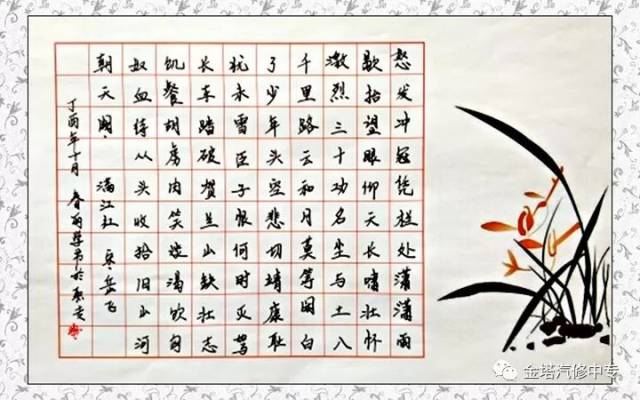 怒发冲冠凭栏处潇潇雨
歇抬望眼仰天长啸壮怀
激烈三十功名尘与土八
千里路云和月莫等闲白
了少年头空悲切靖康耻
犹未雪臣子恨何时灭驾
长车踏破贺兰山缺壮志
饥餐胡虏肉笑谈渴饮匈
奴血待从头收拾旧山河
朝天阙。 满江红 宋岳飞
丁酉年十月 春丽学书于
金塔汽修中专